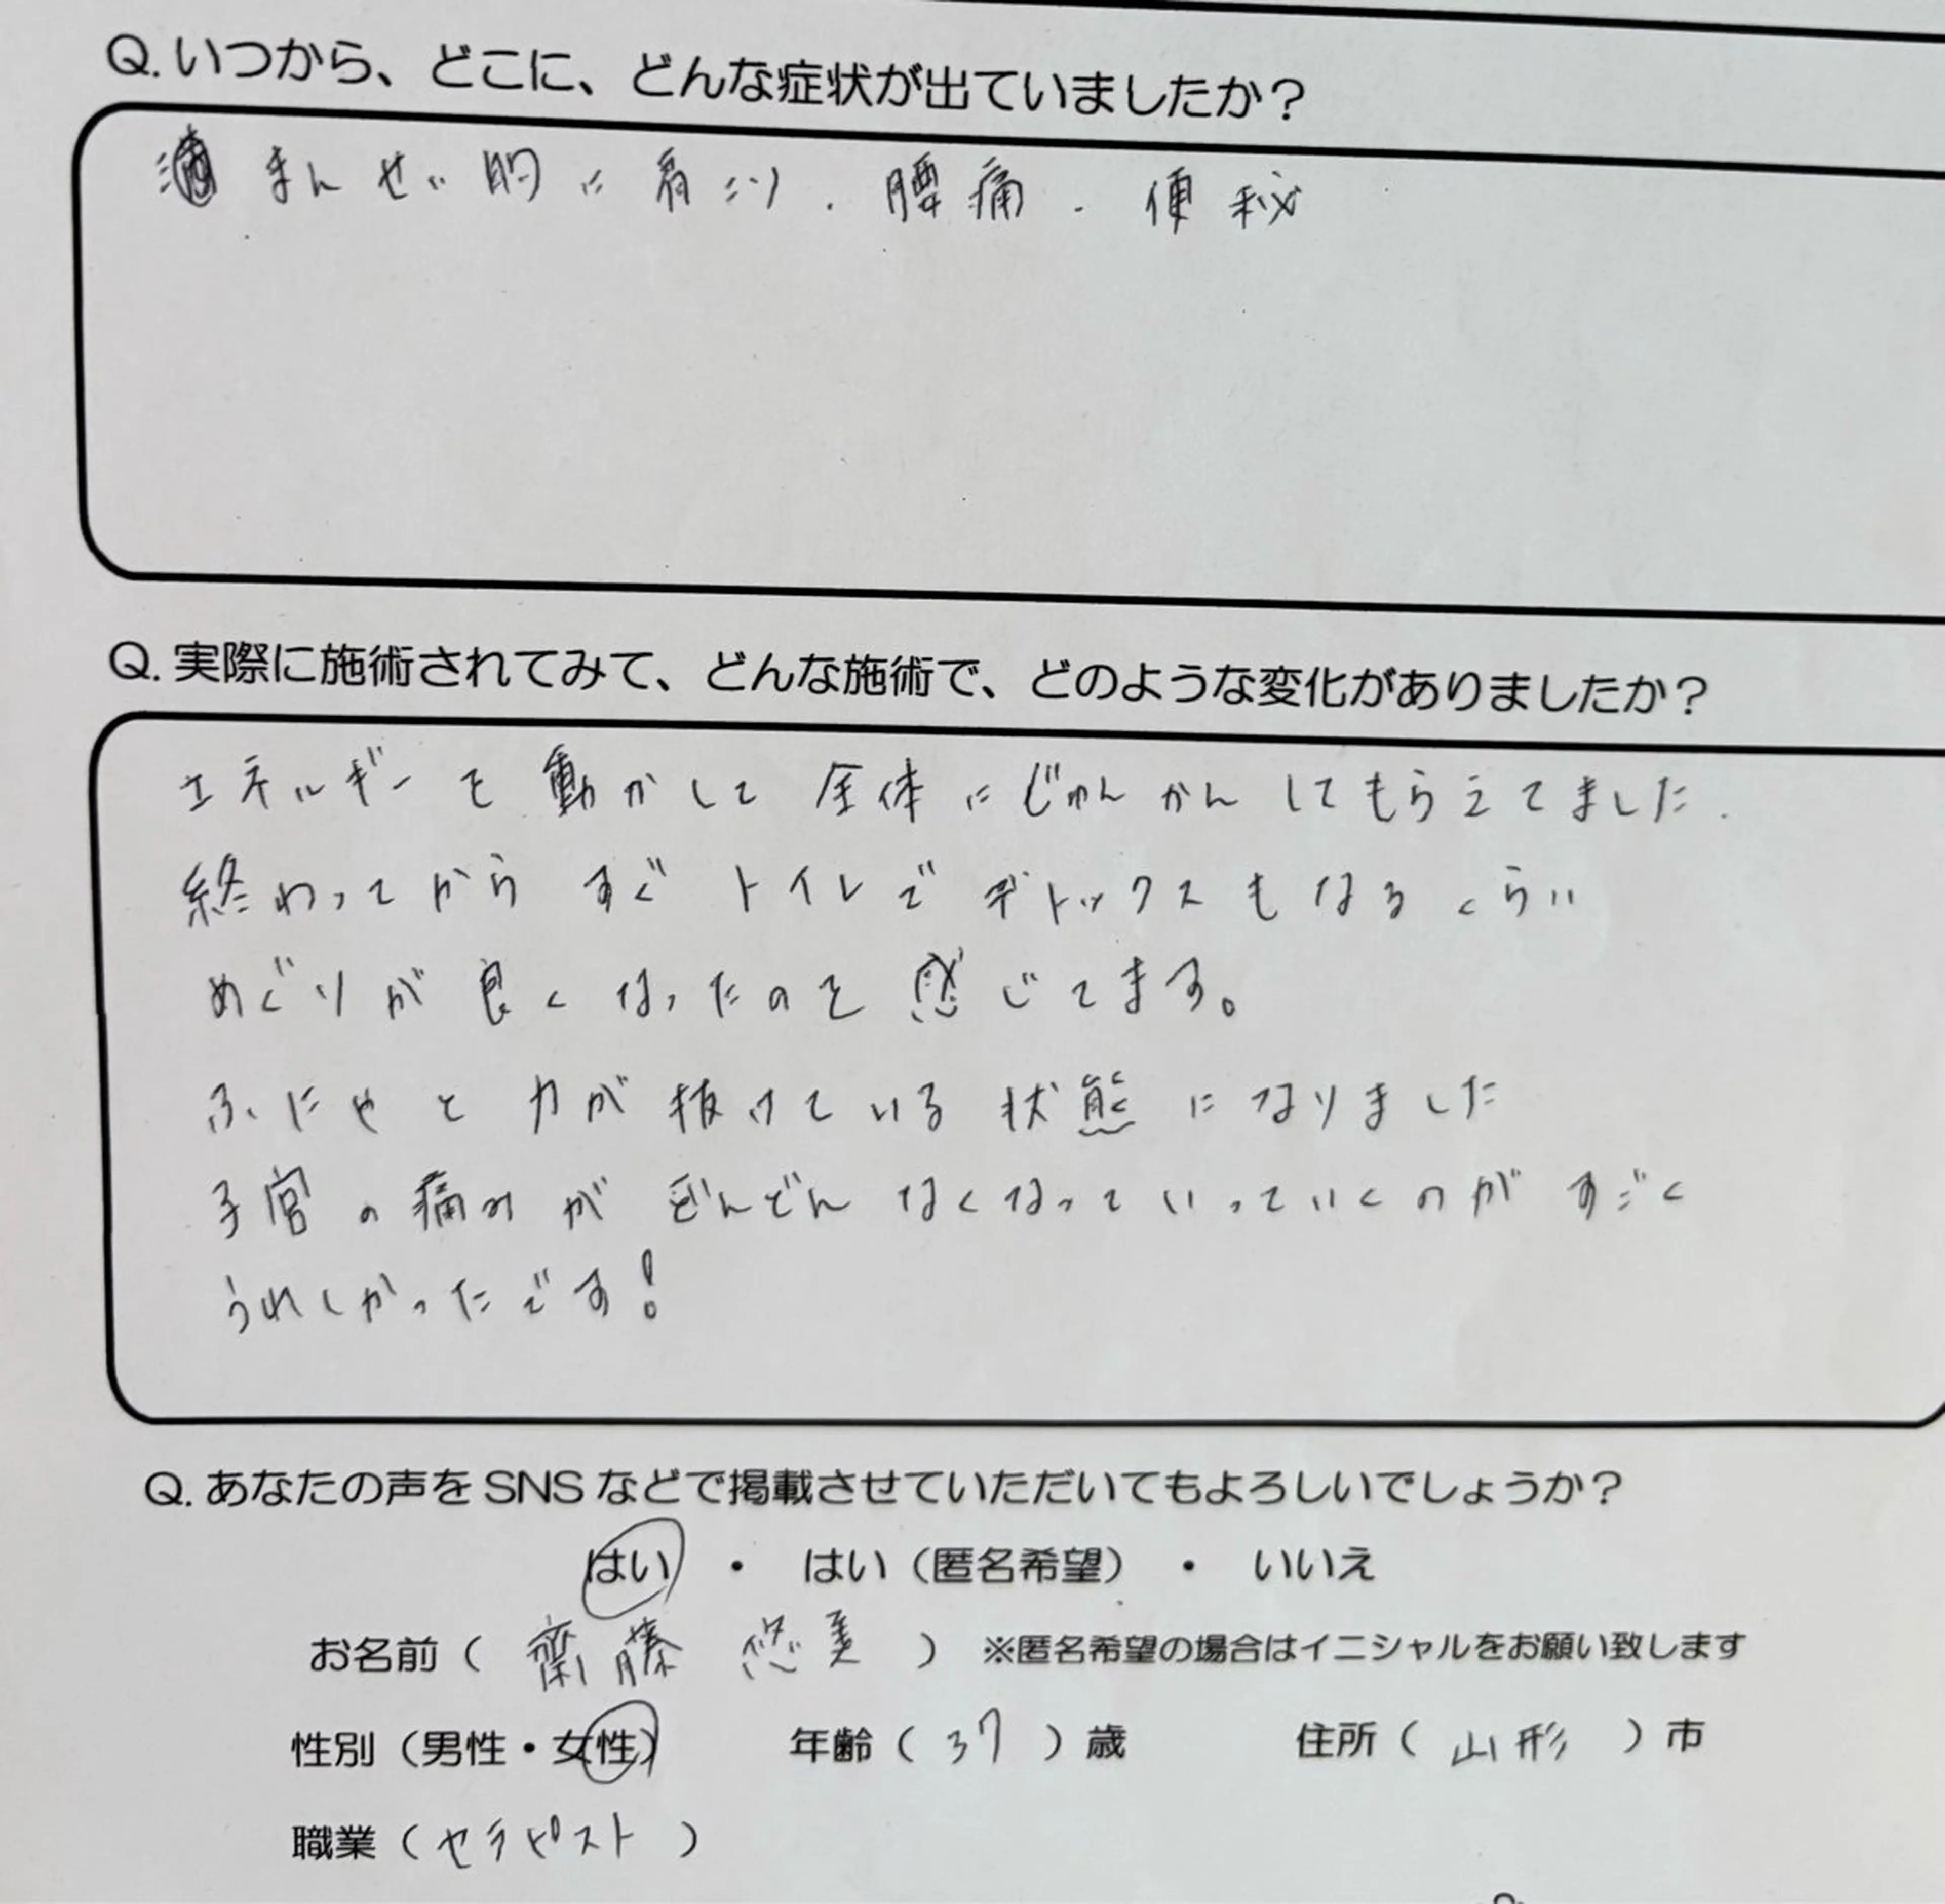 Q. いつから、どこに、どんな症状が出ていましたか？
まんせい的に肩こり．腰痛．便秘
Q. 実際に施術されてみて、どんな施術で、どのような変化がありましたか？
エネルギーを動かして全体にじゅんかんしてもらえてました．
終わってからすぐトイレでデトックスもなるくらい
めぐりが良くなったのを感じてます。
ふにゃと力が抜けている状態になりました
子宮の痛みがどんどんなくなっていっていくのがすごく
うれしかったです！
Q. あなたの声をSNSなどで掲載させていただいてもよろしいでしょうか？
はい ・ はい（匿名希望） ・ いいえ
お名前（ 齋藤 悠美 ） ※匿名希望の場合はイニシャルをお願い致します
性別（男性・女性） 年齢（ 37 ）歳 住所（ 山形 ）市
職業（セラピスト ）